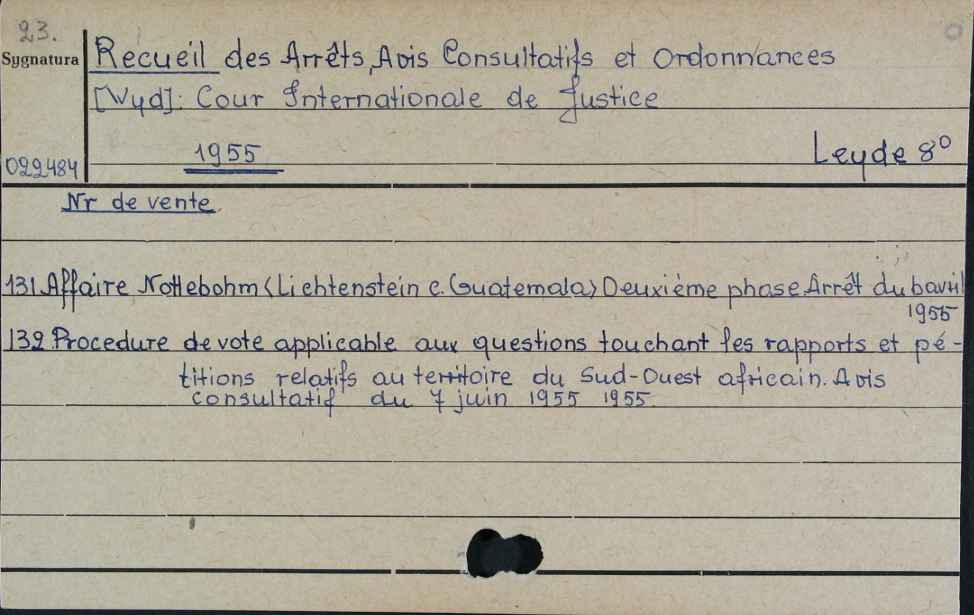 23.
Sygnatura
Recueil des Arrêts, Avis Consultatifs et Ordonnances
[Wyd]: Cour Internationale de Justice
022484
1955
Leyde 8°
Nr de vente
131 Affaire Nottebohm (Lichtenstein c. Guatemala) Deuxième phase Arrêt du 6 avril
1955
132 Procedure de vote applicable aux questions touchant les rapports et pé-
titions relatifs au territoire du Sud-Ouest africain. Avis
consultatif du 7 juin 1955 1955